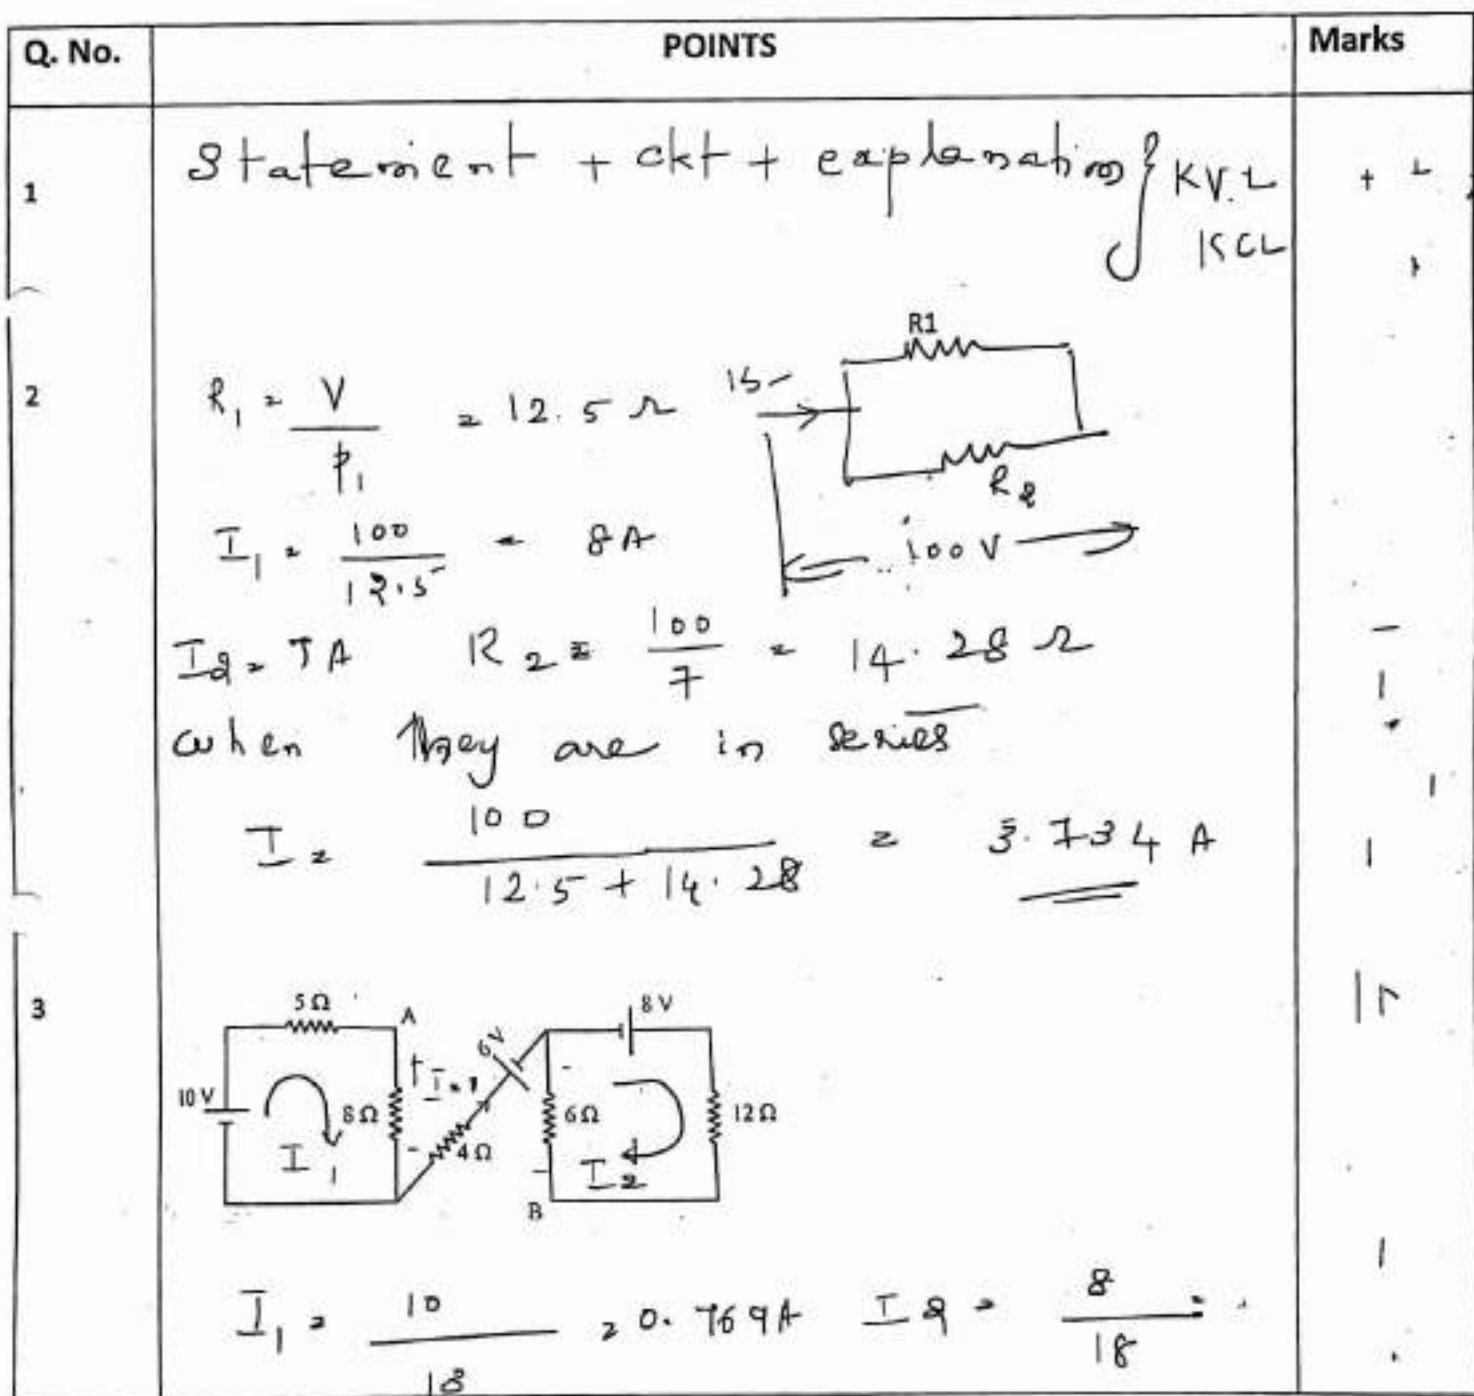 Q. No. POINTS Marks
1 Statement + ckt + explanation } KVL
KCL
R1
2 R₁ = V / P₁ = 12.5 Ω 15
R2
I₁ = 100 / 12.5 = 8A 100 V
I2 = 7A R2 = 100 / 7 = 14.28 Ω
when they are in series
I = 100 / 12.5 + 14.28 = 3.734 A
3
5Ω A 6V 8V
10V 8Ω + I=? 6Ω 12Ω
I₁ - 4Ω I2
B
I₁ = 10 / 13 = 0.769A I2 = 8 / 18 =